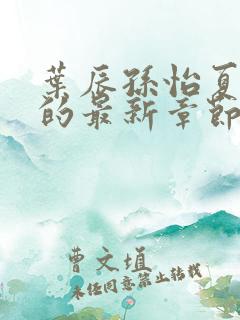 葉辰孫怡夏
的最新章節
曹文埴
未經同意禁止轉載